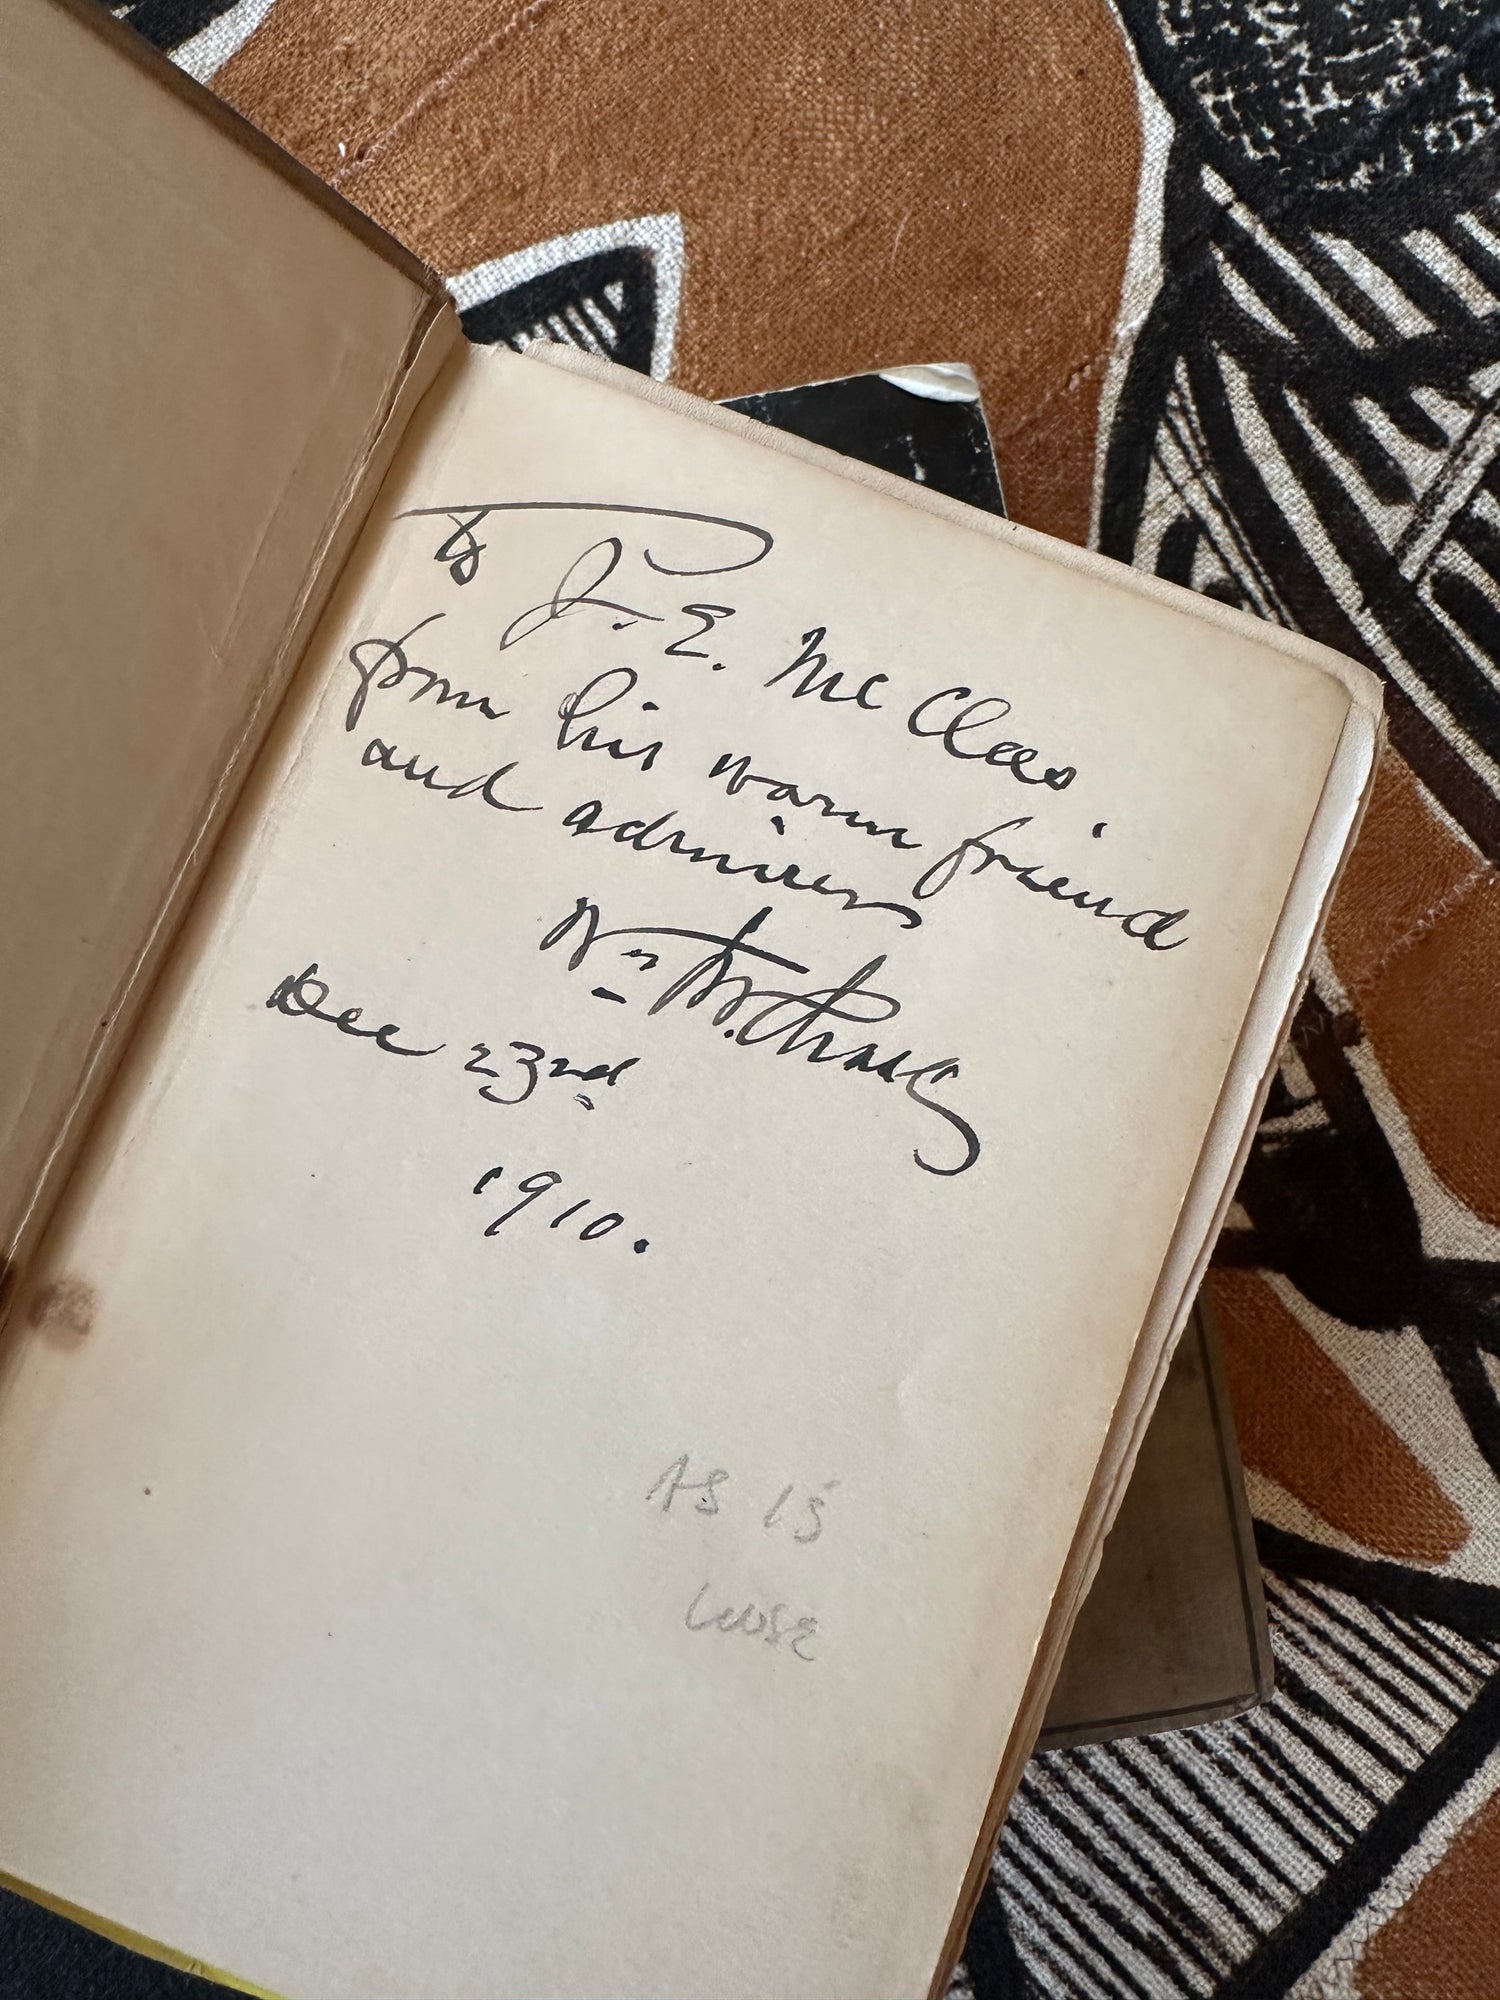 To J. E. Mc Clees.
from his warm friend
and admirer
Wm M. Chase
Dec 23rd
1910.
AS IS
Loose